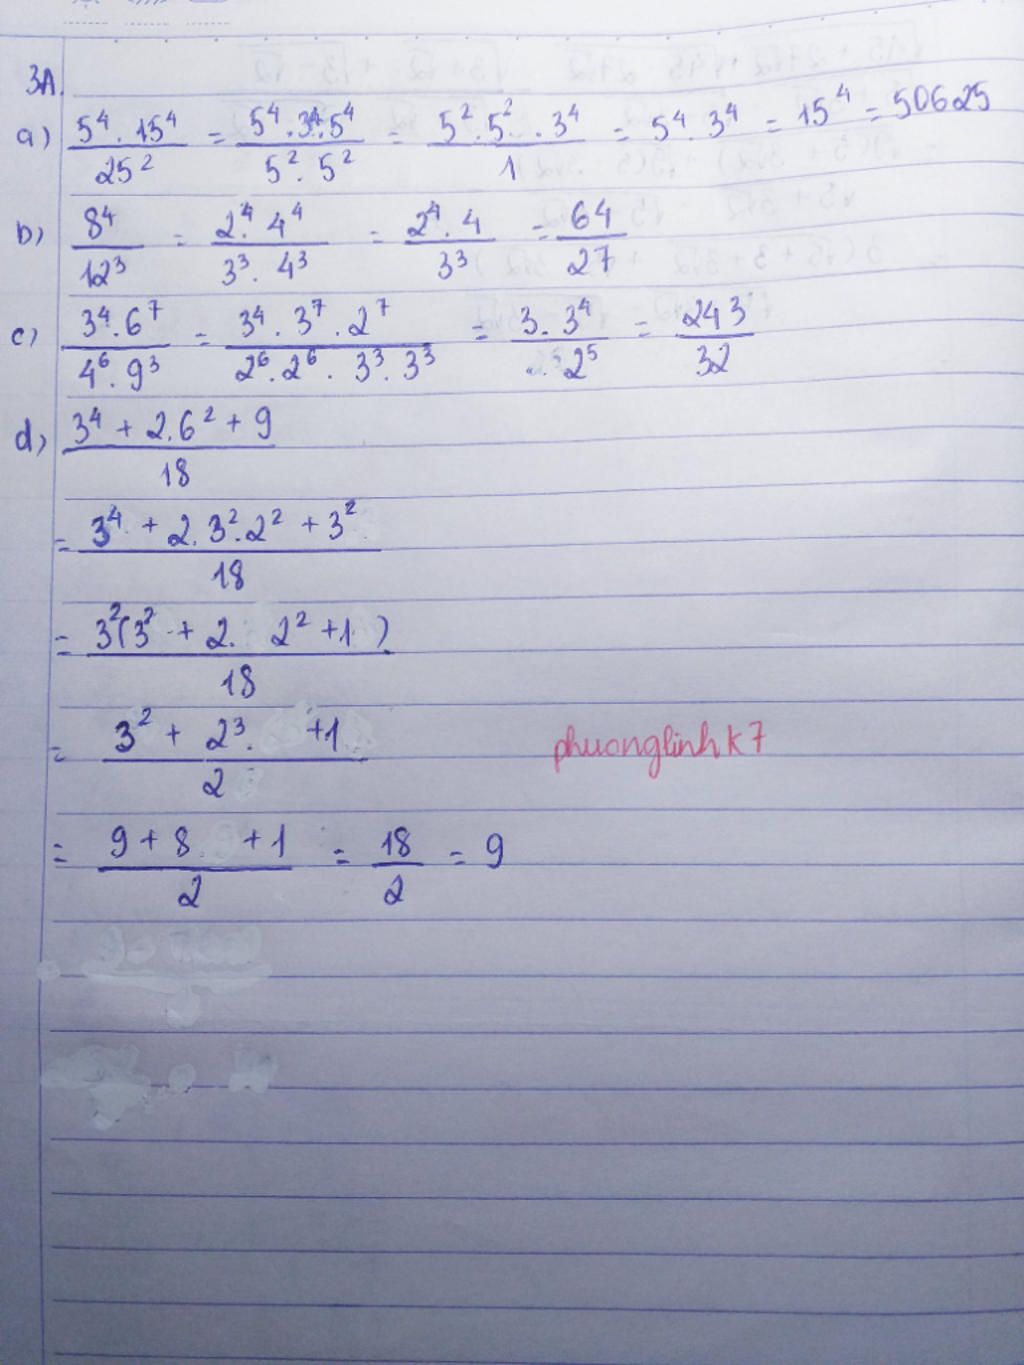 3A.
a) 5⁴.15⁴/25² = 5⁴.3⁴.5⁴/5².5² = 5².5².3⁴/1 = 5⁴.3⁴ = 15⁴ = 50625
b) 8⁴/12³ = 2⁴.4⁴/3³.4³ = 2⁴.4/3³ = 64/27
c) 3⁴.6⁷/4⁶.9³ = 3⁴.3⁷.2⁷/2⁶.2⁶.3³.3³ = 3.3⁴/2⁵ = 243/32
d) 3⁴ + 2.6² + 9/18
= 3⁴ + 2.3².2² + 3²/18
= 3²(3² + 2. 2² + 1)/18
= 3² + 2³. + 1/2
phuonglinhk7
= 9 + 8 + 1/2 = 18/2 = 9